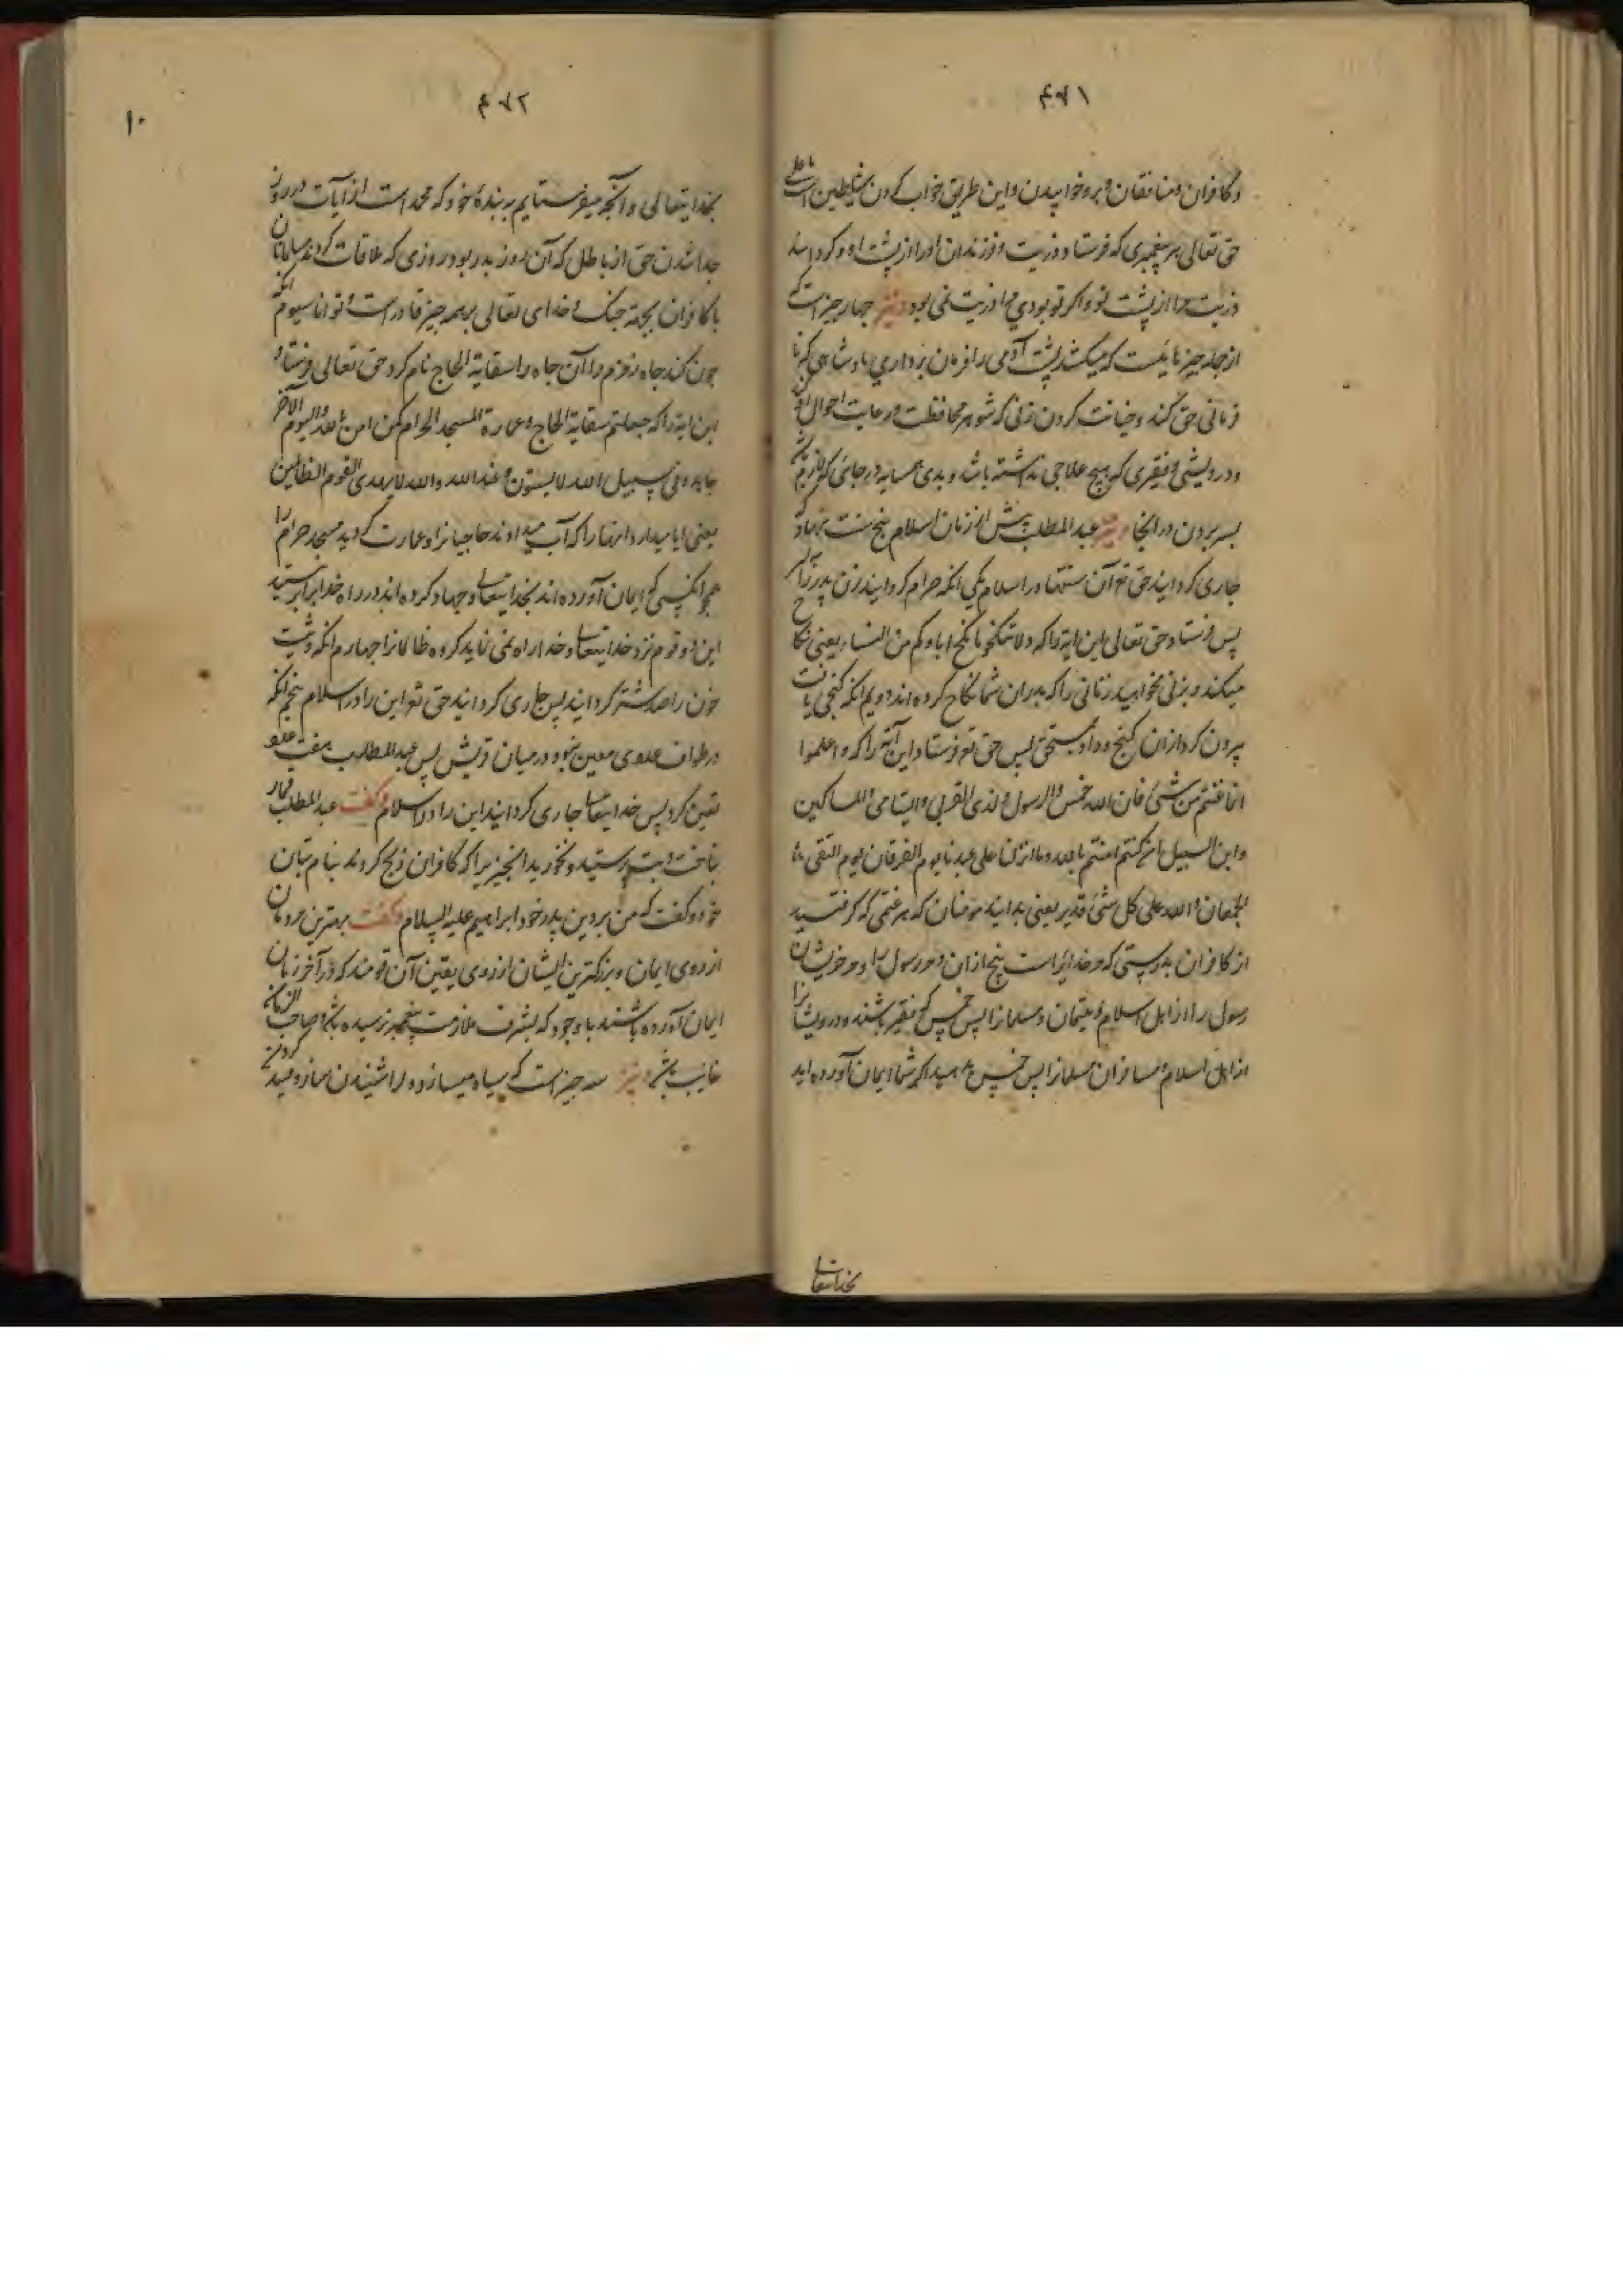 ۴۷۱
و کافران و منافقان بر و خوابیدن و این طریق خواب کردن شیاطین است یا علی
حق تعالی هر پیغمبری که فرستاد ذریت و فرزندان او را از پشت او و کردانید
ذریت مرا از پشت تو و اکر تو بودی مرا ذریت نمی بود و نیز چهار چیز است که
از جمله چیزهاییست که میکشد پشت آدمی را فرمان برداری پادشاهی که نا
فرمانی حق کند و خیانت کردن زنی که شوهر محافظت و رعایت احوال او کند
و درویشی و فقیری که هیچ علاجی نداشته باشد و بدی همسایه در جائی که لازم باشد
بسر بردن در انجا و نیز عبد المطلب پیش از زمان اسلام پنج سنت نهاد که
جاری کردانید حق تع آن سنتها در اسلام یکی انکه حرام کردانید زن پدر را بر
پس فرستاد حق تعالی این ایه را که و لا تنکحو ما نکح اباوکم من النساء یعنی نکاح
میکند و بزنی نخواهید زنانی را که پدران شما نکاح کرده اند دویم انکه کنجی یافت
بیرون کرد از ان کنج و داد بمستحق پس حق تع فرستاد این آیه را که و اعلموا
انما غنمتم من شئ فان لله خمسه و للرسول و لذی القربی و الیتامی و المساکین
و ابن السبیل ان کنتم امنتم بالله و ما انزلنا علی عبدنا یوم الفرقان یوم التقی
الجمعان و الله علی کل شئ قدیر یعنی بدانید مؤمنان که هر غنمتی که کرفتید
از کافران بدرستی که مر خدایراست پنج از ان و مر رسول را و مر خویشان
رسول را از اهل اسلام و یتیمان و مسلمانرا پس خمس که فقیر باشند و درویشانرا
از اهل اسلام و مسافران مسلمانرا پس خمس بدهید اکر شما ایمان آورده اید
بخدایتعا
۴۷۲
۱۰
بخدایتعالی و آنچه میفرستایم به بنده خود که محمد است از آیات در روز
جدا شدن حق از باطل که آن روز بدر بود روزی که ملاقات کردند مسلمانان
با کافران بجهة جنک و خدای تعالی بر همه چیز قادر است و توانا سیوم انکه
چون کند چاه زمزم را آن چاه را سقایة الحاج نام کرد حق تعالی فرستاد
این ایه را که جعلتم سقایة الحاج و عمارة المسجد الحرام کمن امن بالله و الیوم الآخر
جاهد فی سبیل الله لا یستون عند الله و الله لا یهدی القوم الظالمین
یعنی ایا میدارد انها را که آب میداوند حاجیانرا و عمارت کردید مسجد حرام را
همچو انکسی که ایمان آورده اند بخدایتعا و جهاد کرده اند در راه خدا برابر نیستند
این دو قوم نزد خدایتعا و خدا راه نمی نماید کروه ظالمانرا چهارم انکه دیت
خون را صد شتر کردانید پس جاری کردانید حق تع این را در اسلام پنجم انکه
در طواف عددی معین نبود در میان قریش پس عبد المطلب هفت عدد
تعین کرد پس خدایتعا جاری کردانید این را در اسلام و کفت عبد المطلب قمار
نباخت و بت نپرستید و نخورید انچیزیرا که کافران ذبح کردند بنام بتان
خود و کفت که من بر دین پدر خود ابراهیم علیه السلام و کفت بهترین مردمان
از روی ایمان و بزرکترین ایشان از روی یقین آن قومند که در آخر زمان
ایمان آورده باشند با وجود که بشرف ملازمت پیغمبر نرسیده باشد و صاحب الزمان
غایب باشد و نیز سه چیز است که سیاه میسازد دل را شنیدن ساز و صید کردن